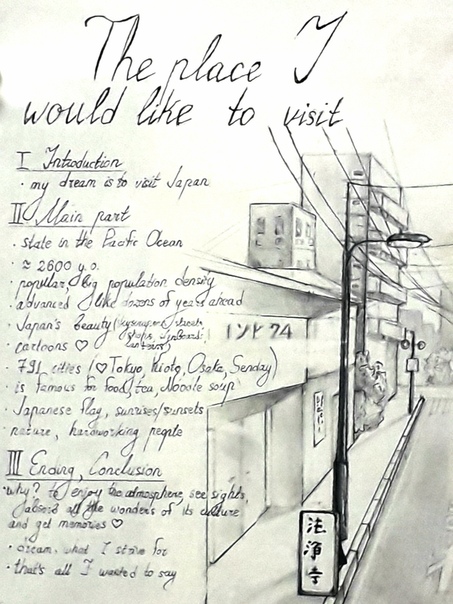 The place I
would like to visit
I Introduction
· my dream is to visit Japan
II Main part
· state in the Pacific Ocean
· ≈ 2600 y.o.
· popular, big population density
· advanced (like dozens of years ahead
· Japan's beauty (skyscrapers, streets,
· cartoons ♡
· 791 cities (♡Tokyo, Kioto, Osaka, Senday)
· is famous for food, tea, Noodle soup
· Japanese flag, sunrises/sunsets
· nature, hardworking people
III Ending, Conclusion
· why? to enjoy the atmosphere, see sights,
all the wonders of its culture
and get memories ♡
· dream, what I strive for
· that's all I wanted to say
74
法
浄
寺